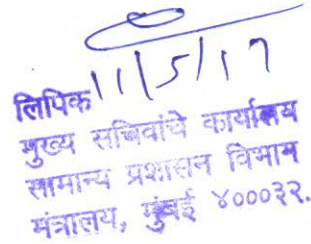 11/5/17
लिपिक
मुख्य सचिवांचे कार्यालय
सामान्य प्रशासन विभाग
मंत्रालय, मुंबई ४०००३२.